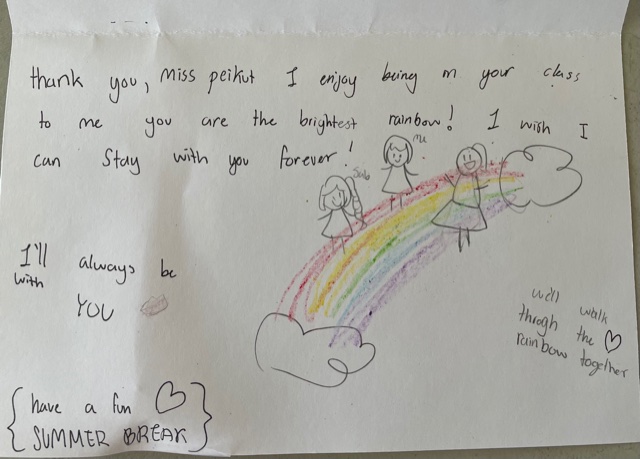 thank you, miss peikut I enjoy being in your class
to me you are the brightest rainbow! I wish I
can stay with you forever!
me
I'll always be
with
YOU
we'll walk
throgh the
rainbow together
{have a fun
SUMMER BREAK}